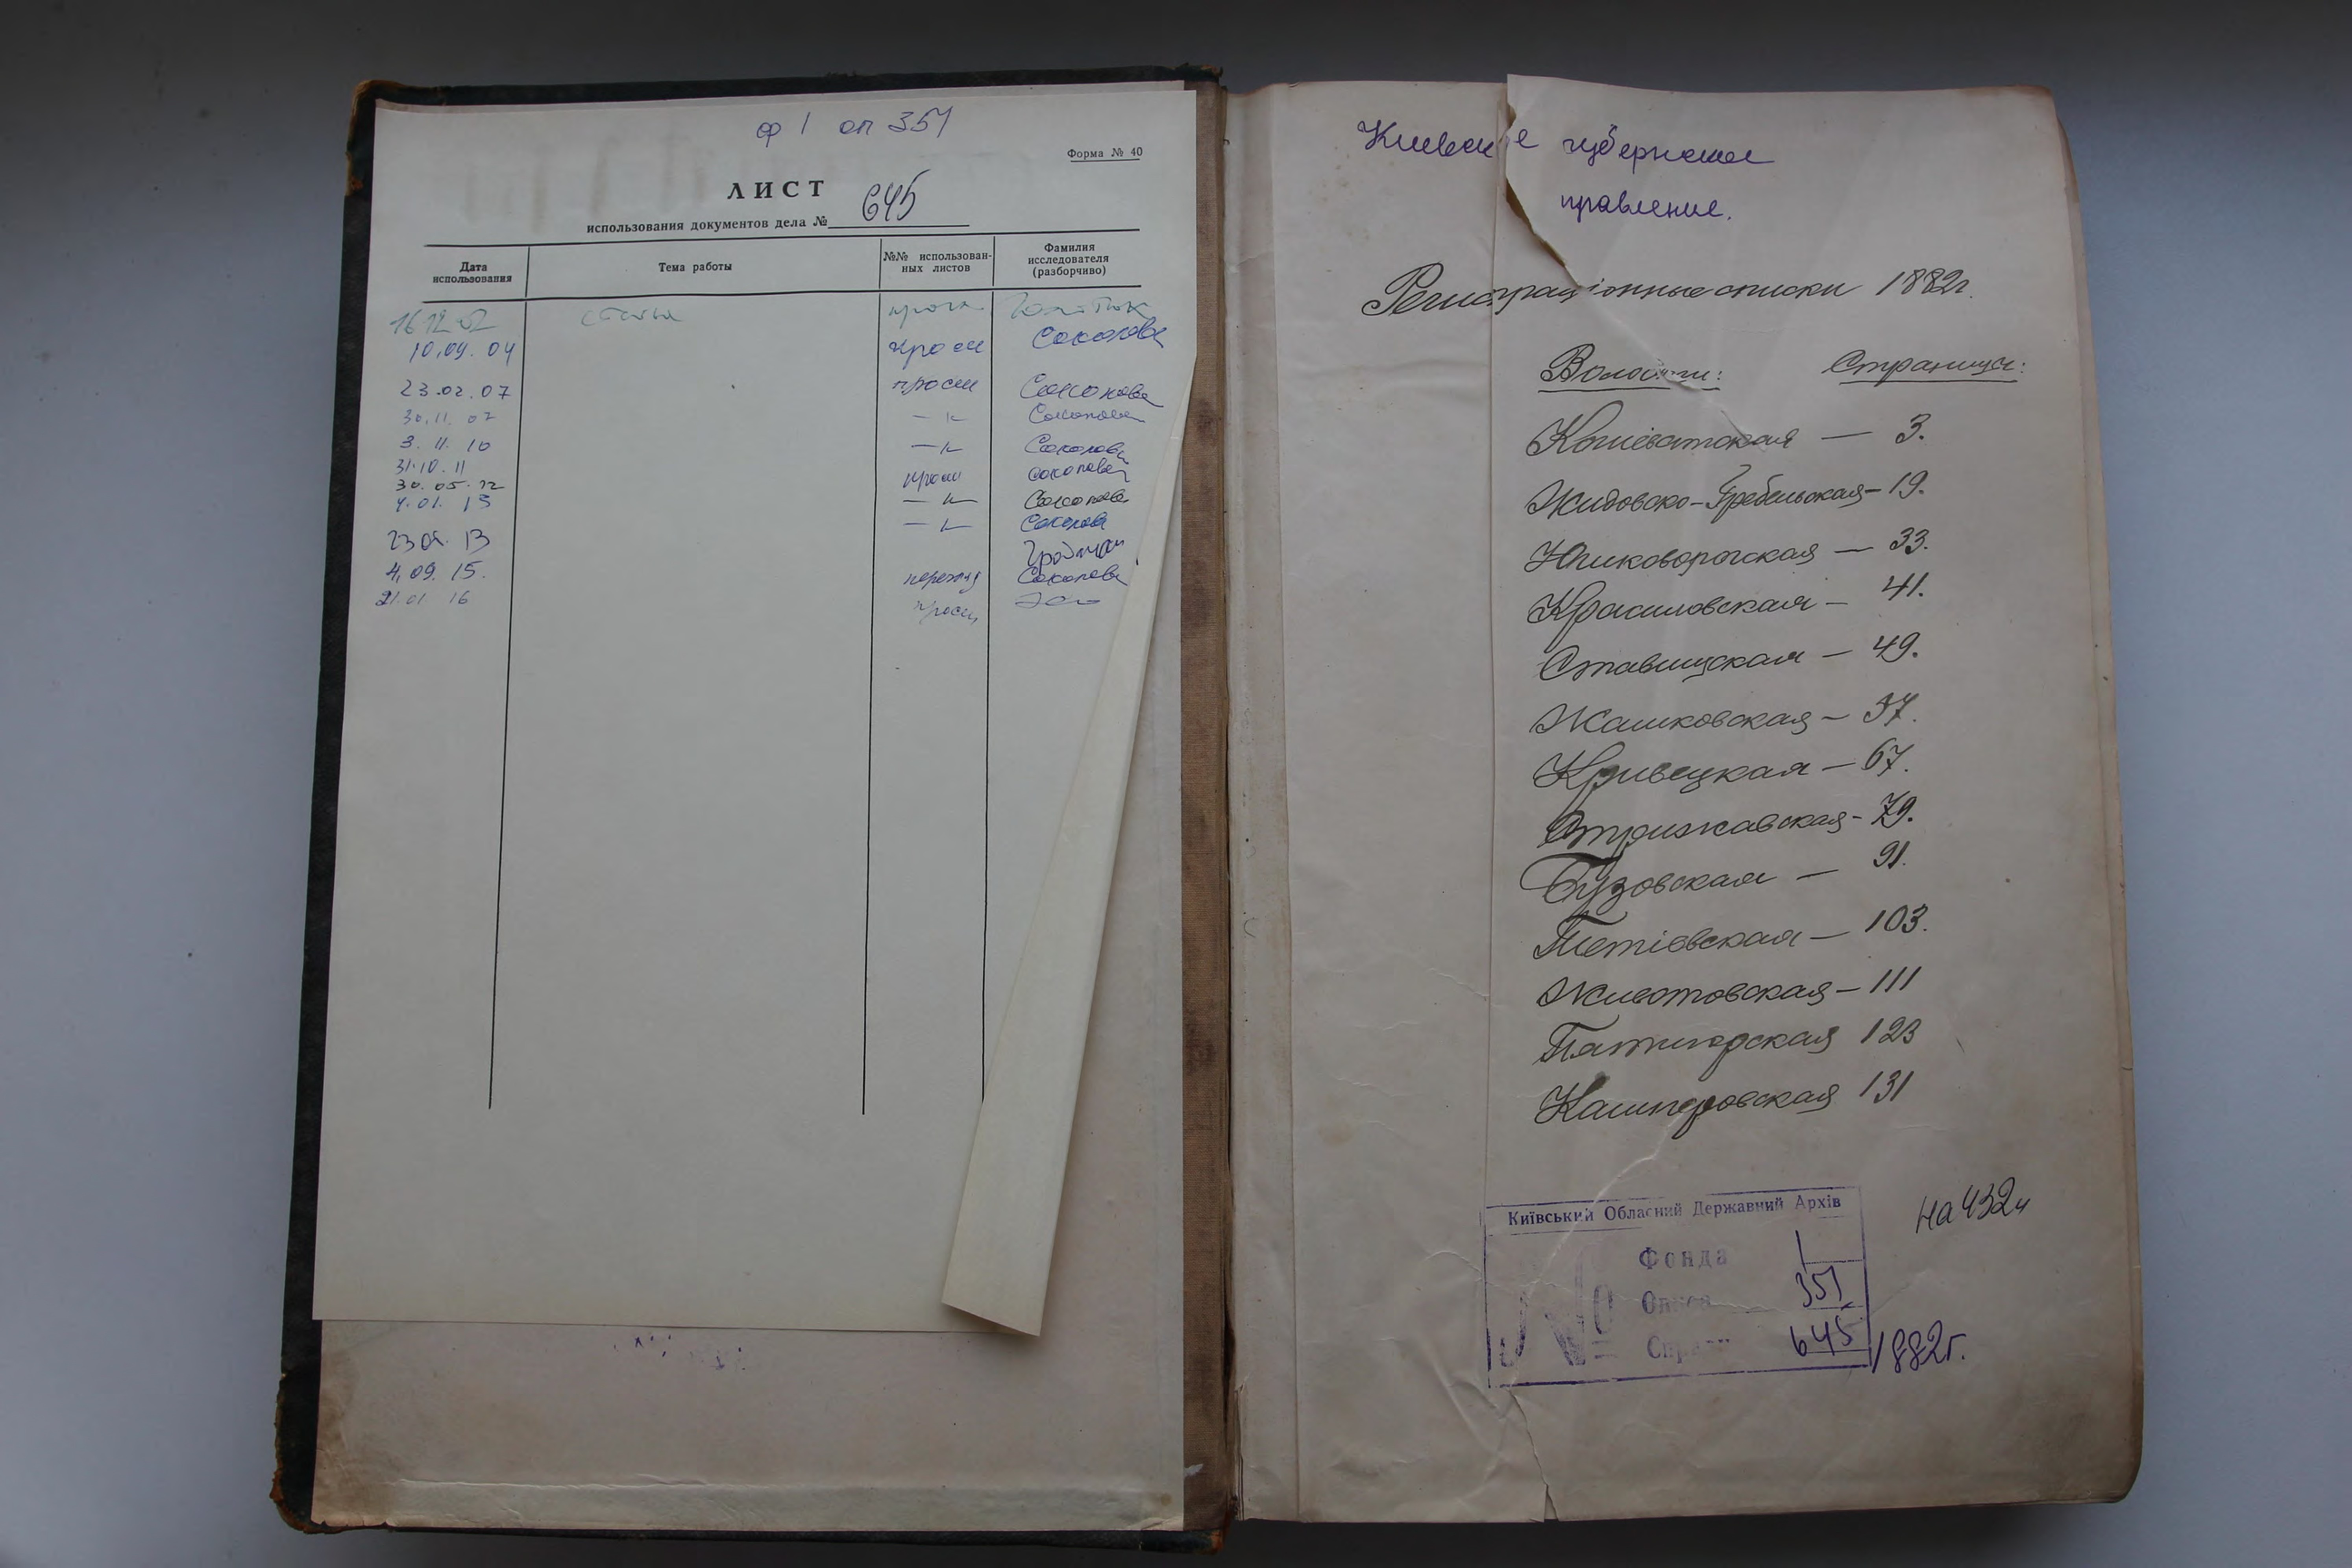 ф 1 оп 351
Форма № 40
ЛИСТ
использования документов дела № 645
Дата использования
Тема работы
№№ использован-
ных листов
Фамилия
исследователя
(разборчиво)
16 12 02 статья
10.09.04 просм Соколова
23.02.07 просм Соколова
30.11.07 — " — Соколова
3.11.10 — " — Соколова
31.10.11 просм Соколова
30.05.12 — " — Соколова
4.01.13 — " — Соколова
23 04. 13
4.09.15. Соколова
21.01 16 просм
Киевское губернское
правление.
Регистраціонные списки 1882г.
Волости: Страницы:
Кошеватская — 3.
Жидовско-Гребельская — 19.
Юшковорогская — 33.
Красиловская — 41.
Ставищская — 49.
Жашковская — 57.
Кривецкая — 67.
Стрижавская - 79.
Бузовская — 91.
Тетіевская — 103.
Животовская — 111
Пятигорская 123
Кашперовская 131
На 432 л
Київський Обласний Державний Архів
№
Фонда 1
Описи 351
Справи 645
1882г.